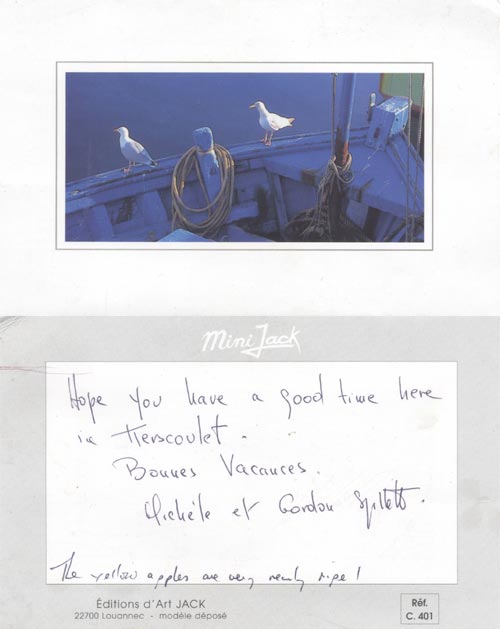 Mini Jack
Hope you have a good time here
in Kerscoulet.
Bonnes Vacances.
Michèle et Gordon
The yellow apples are very nearly ripe!
Éditions d'Art JACK
22700 Louannec - modèle déposé
Réf.
C. 401